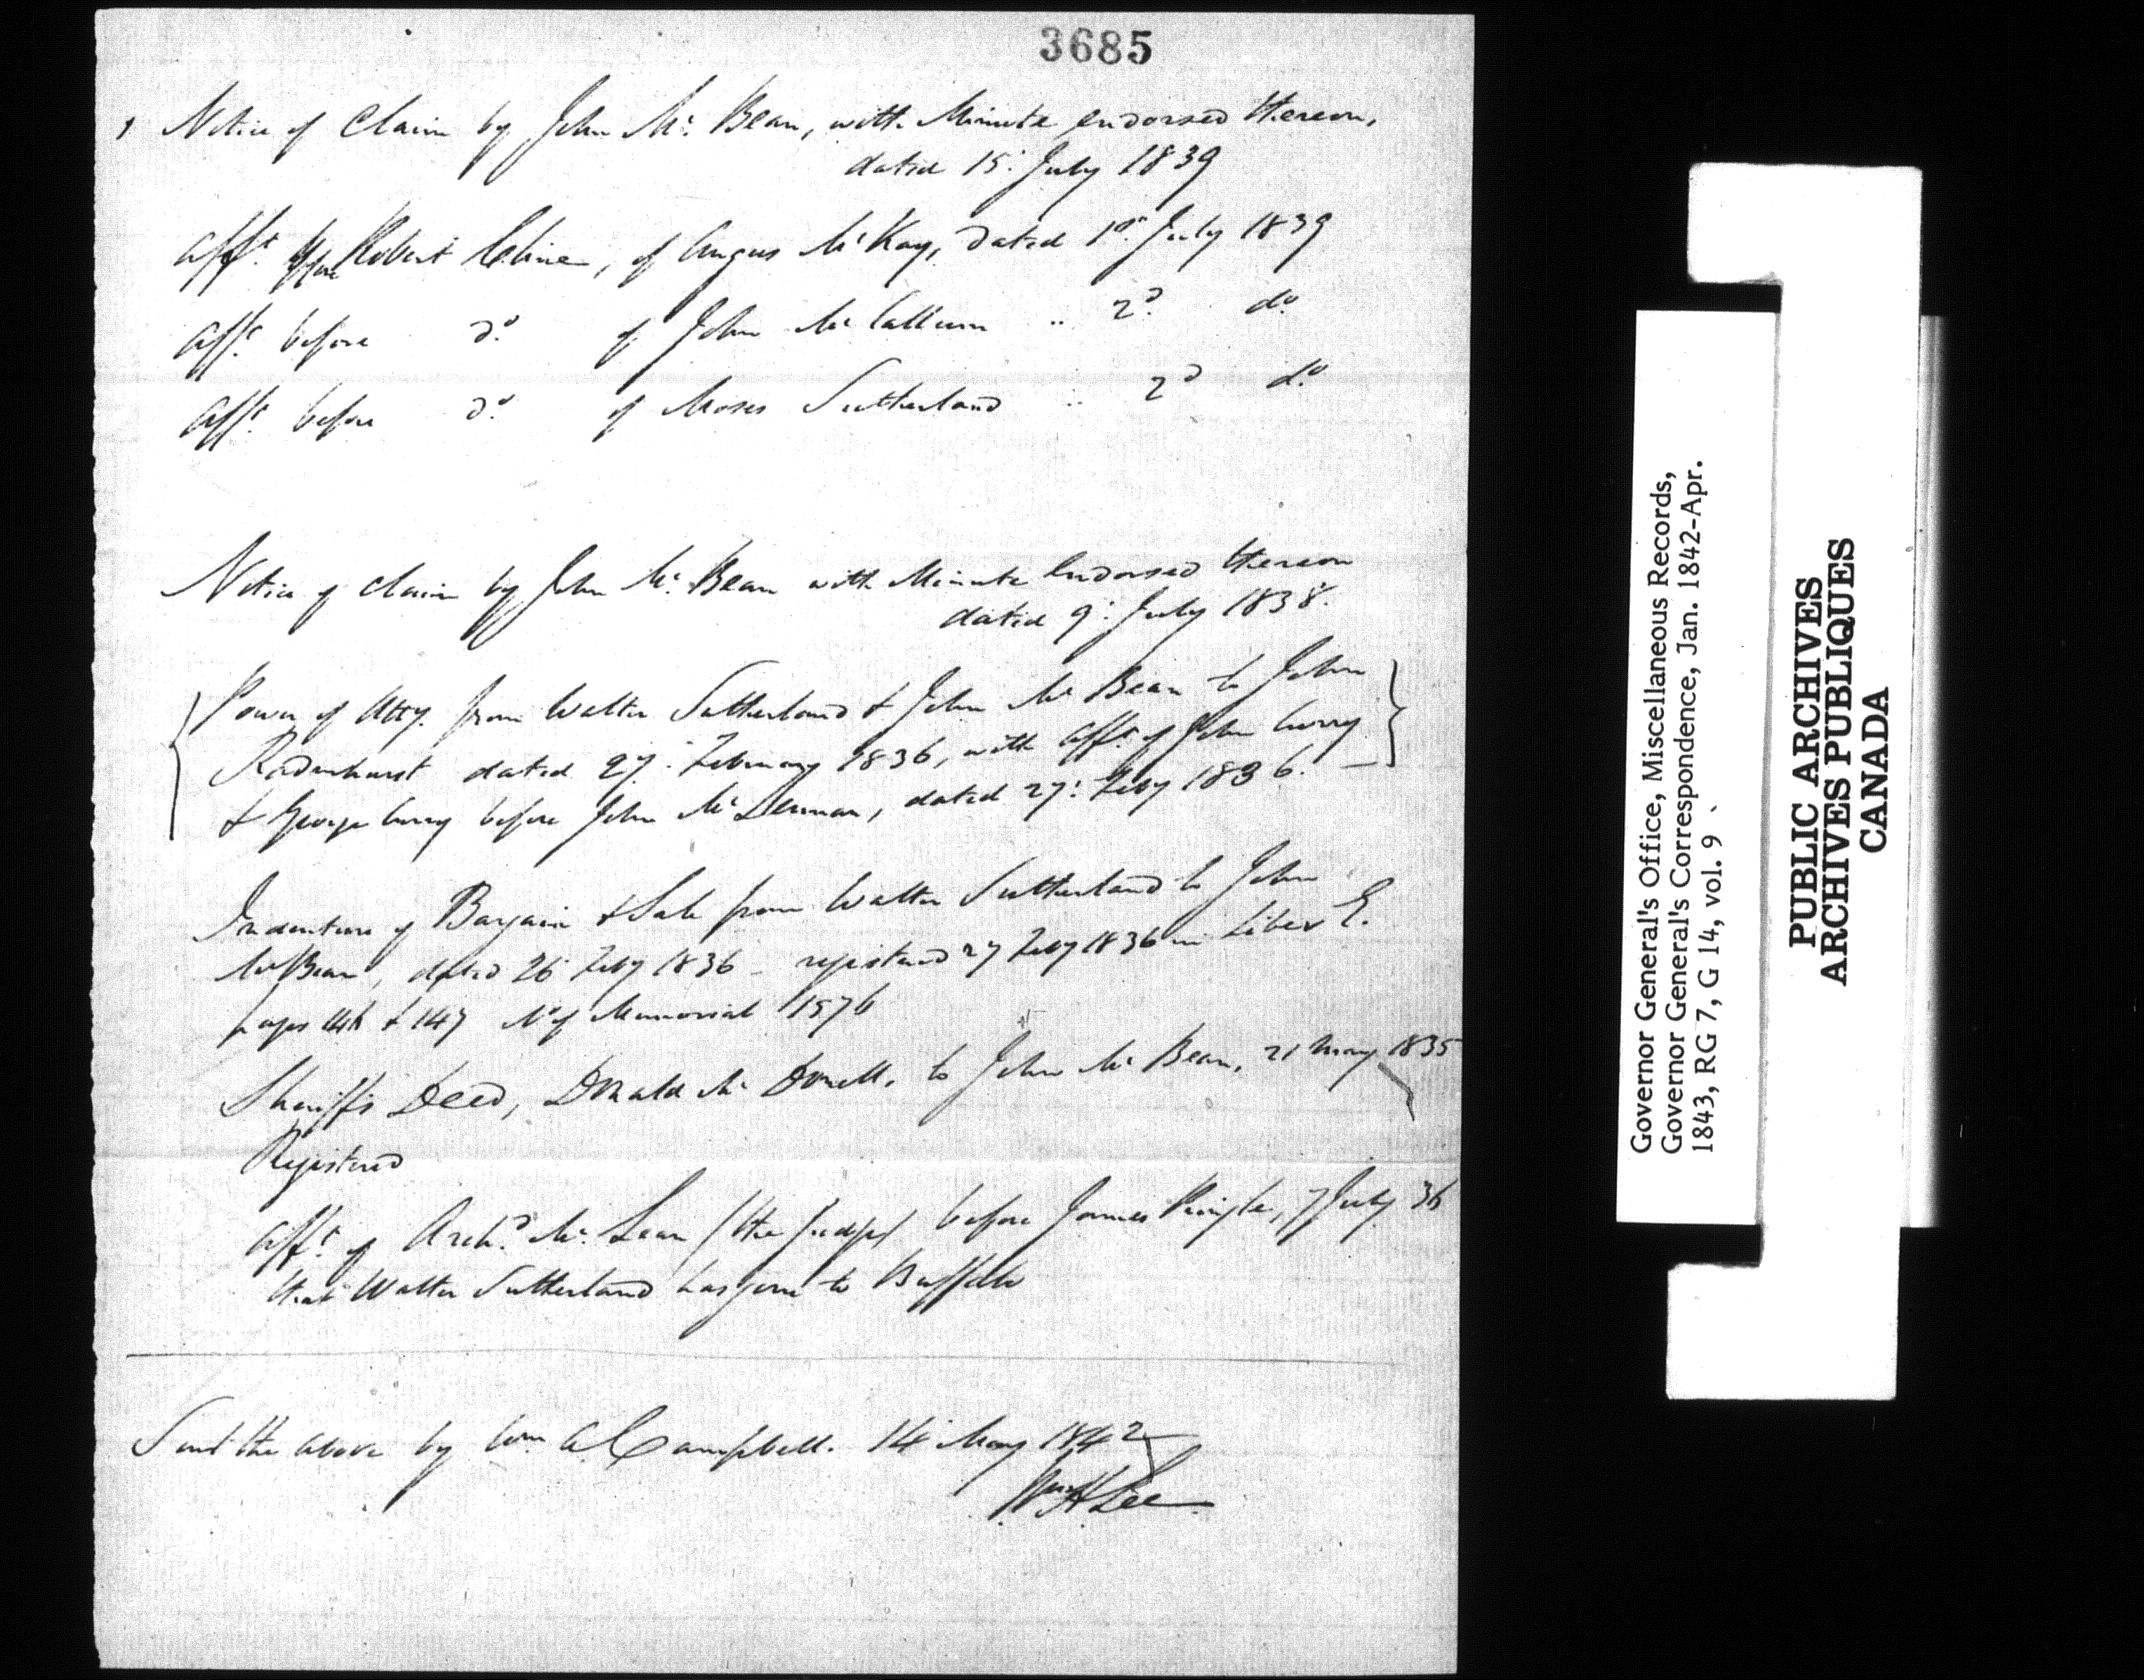 3685
Notice of Claim by John Mc. Bean, with Minute endorsed thereon,
dated 15. July 1839
Afft. before Robert Cline, of Angus McKay, Dated 1st. July 1839
Afft. before Do. of John McCallum .. 2d. do.
Afft. before Do. of Moses Sutherland .. 2d do.
Notice of claim by John Mc. Bean with Minute Endorsed thereon
dated 9. July 1838.
Power of Atty. from Walter Sutherland & John Mc Bean to John
Radenhurst dated 27. February 1836, with afft. of John Curry
& George Curry before John McLennan, dated 27. Feby 1836. —
Indenture of Bargain & Sale from Walter Sutherland to John
McBean, dated 26 Feby 1836 – registered 27 Feby 1836 in Liber E.
pages 146 & 147 No. of Memorial 1576
Sheriff's Deed, Donald Mc Donell, to John Mc Bean, 21 May 1835
Registered
Afft. of Archd. Mc. Lean (the Judge) before James Pringle, 7 July 36
that Walter Sutherland has gone to Buffalo
Sent the above by Wm A Campbell. 14 May 1842
Wm H Lee
Governor General's Office, Miscellaneous Records,
Governor General's Correspondence, Jan. 1842-Apr.
1843, RG 7, G 14, vol. 9
PUBLIC ARCHIVES
ARCHIVES PUBLIQUES
CANADA